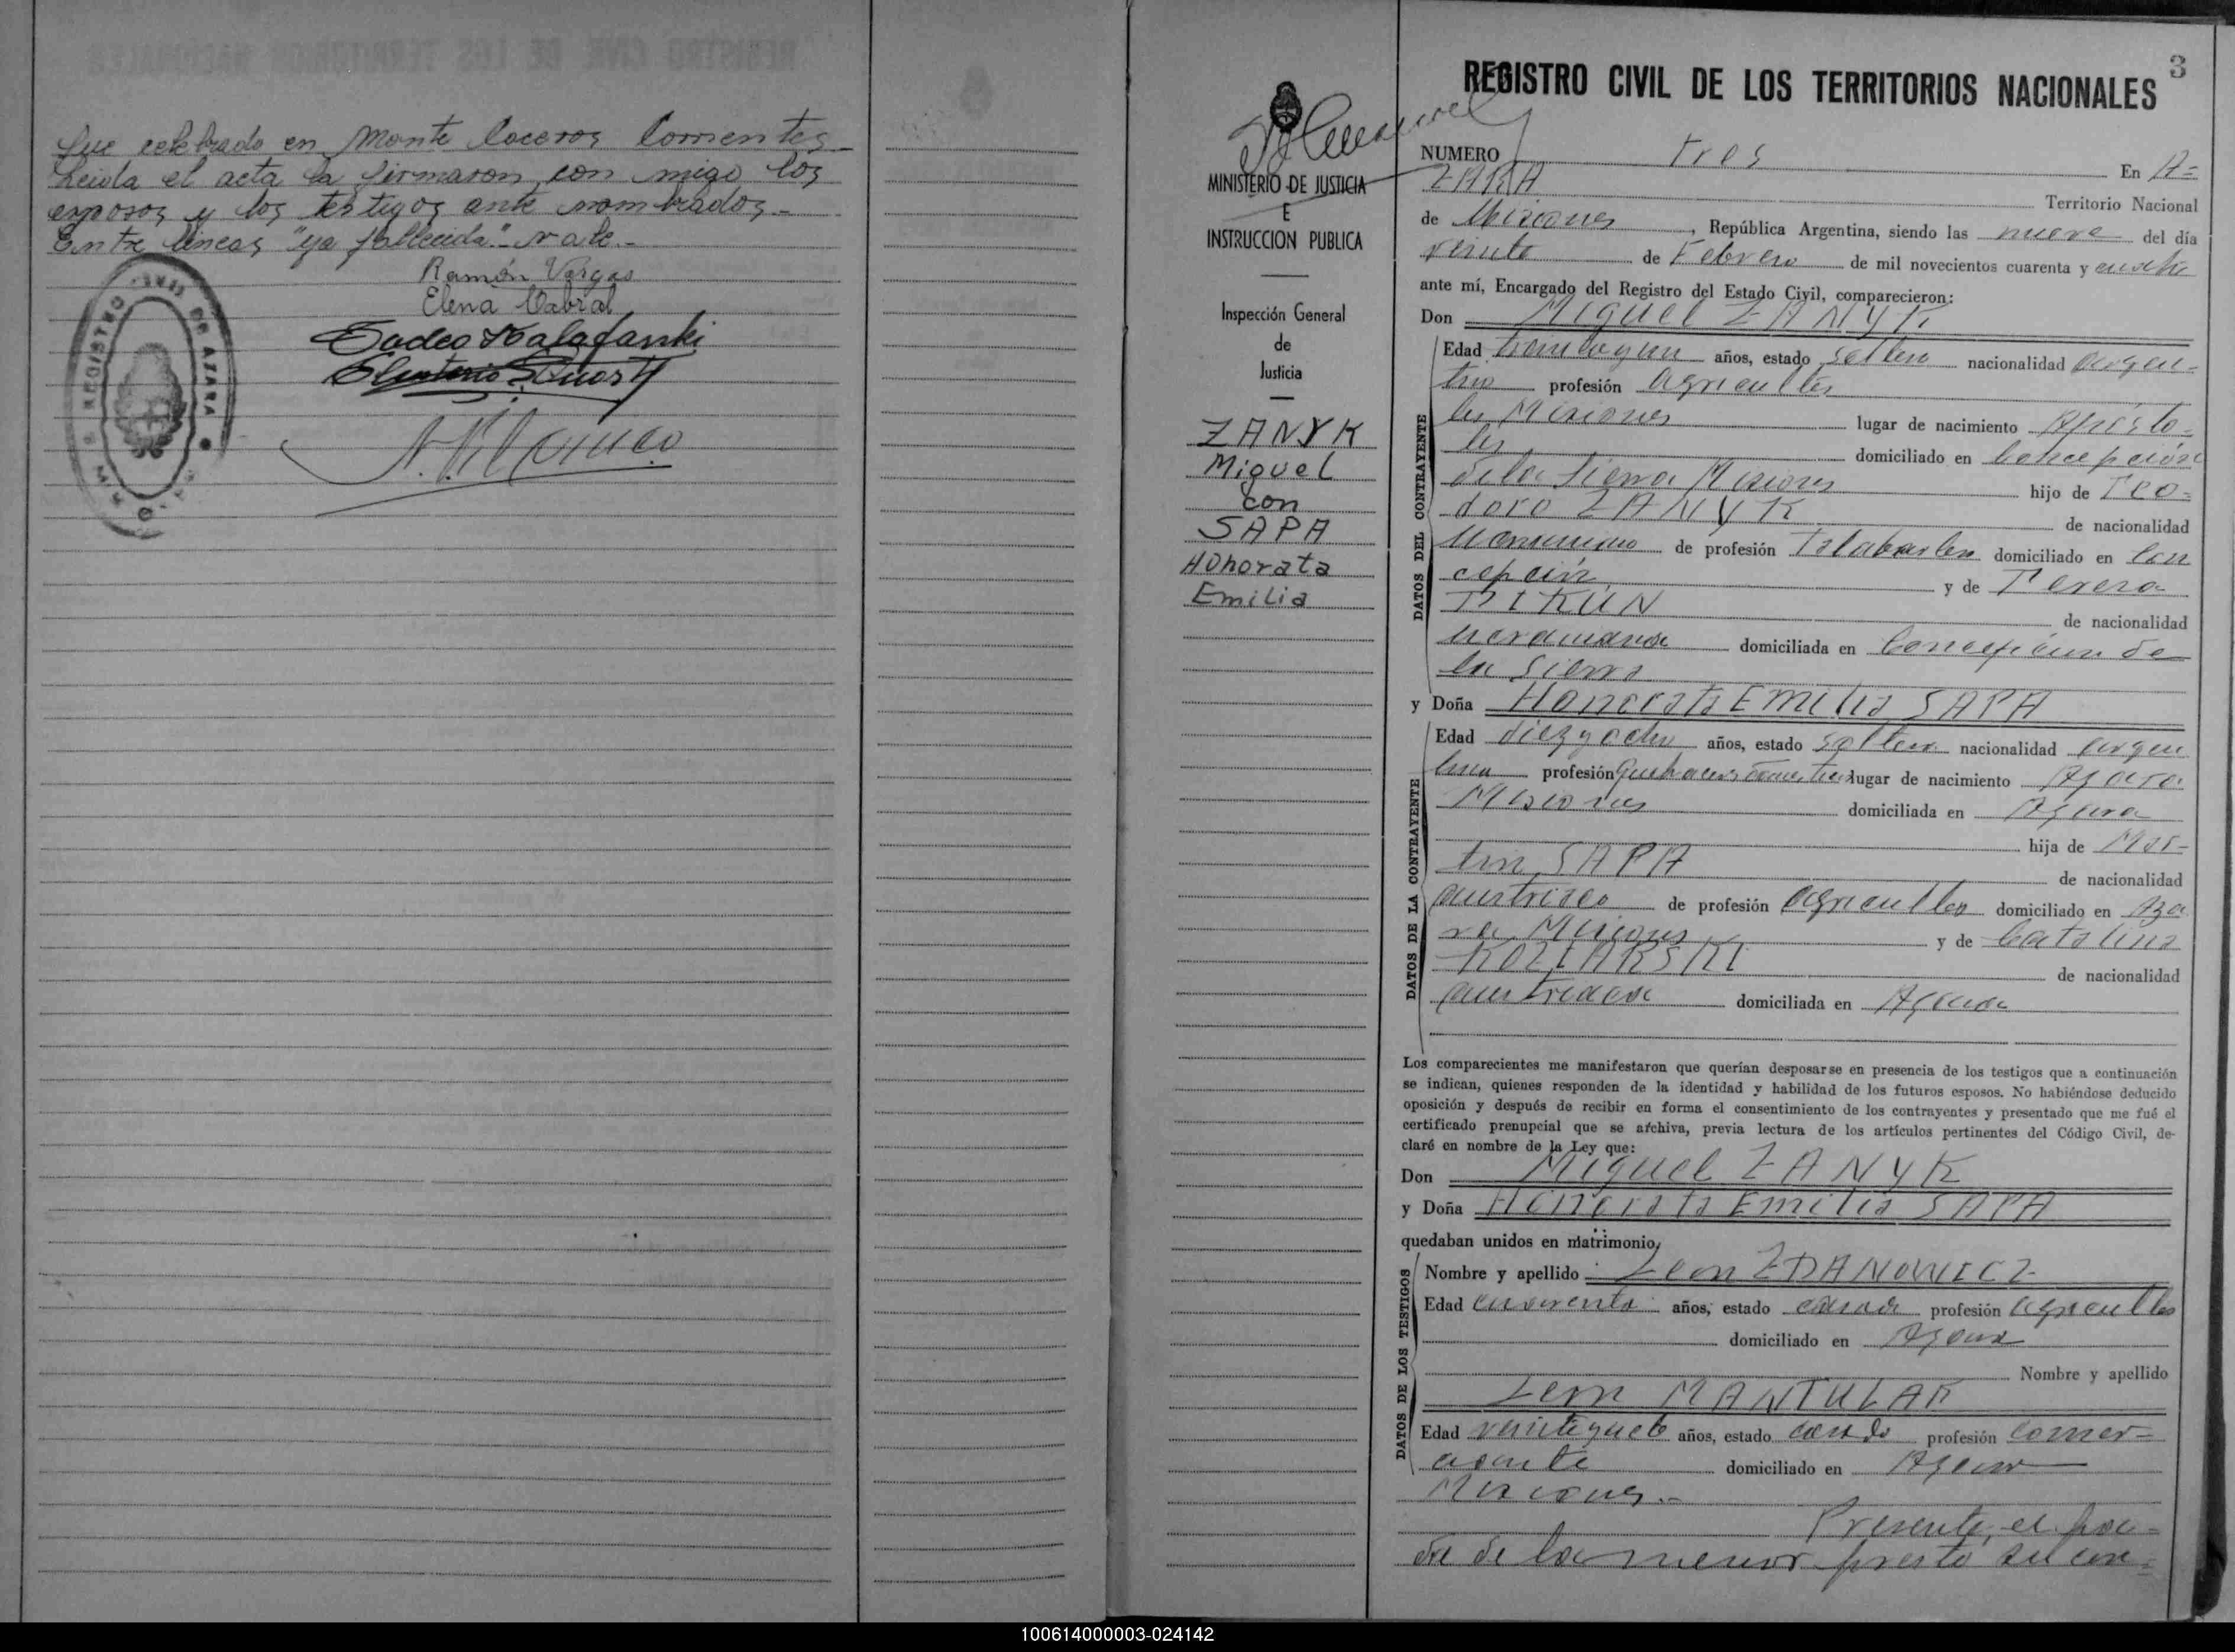 fue celebrado en Monte Caceros Corrientes
Leida el acta la firmaron con migo los
esposos y los testigos ante nombrados.-
Entre lineas "ya fallecida" - vale.-
Ramón Vargas
Elena Cabral
REGISTRO
DE AZARA
MINISTERIO DE JUSTICIA
E
INSTRUCCION PUBLICA
Inspección General
de
Justicia
ZANYK
Miguel
con
SAPA
Honorata
Emilia
3
REGISTRO CIVIL DE LOS TERRITORIOS NACIONALES
NUMERO tres En A=
ZARA Territorio Nacional
de Misiones, República Argentina, siendo las nueve del día
veinte de Febrero de mil novecientos cuarenta y cuatro
ante mí, Encargado del Registro del Estado Civil, comparecieron:
Don Miguel ZANYK
DATOS DEL CONTRAYENTE
Edad años, estado soltero nacionalidad argen-
tino profesión agricultor
Misiones lugar de nacimiento Apósto-
les domiciliado en Concepción
de la Sierra Misiones hijo de Teo-
doro ZANYK de nacionalidad
de profesión domiciliado en Con
cepción y de Teresa
de nacionalidad
domiciliada en Concepción de
la Sierra
y Doña Honorata Emilia SAPA
DATOS DE LA CONTRAYENTE
Edad diez y ocho años, estado soltera nacionalidad argen
tina profesión quehaceres domesticos lugar de nacimiento Azara
Misiones domiciliada en Azara
hija de Mar-
tin SAPA de nacionalidad
austriaco de profesión agricultor domiciliado en Aza
ra Misiones y de Catalina
KOZIARSKI de nacionalidad
austriaca domiciliada en Azara
Los comparecientes me manifestaron que querían desposarse en presencia de los testigos que a continuación
se indican, quienes responden de la identidad y habilidad de los futuros esposos. No habiéndose deducido
oposición y después de recibir en forma el consentimiento de los contrayentes y presentado que me fué el
certificado prenupcial que se archiva, previa lectura de los artículos pertinentes del Código Civil, de-
claré en nombre de la Ley que:
Don Miguel ZANYK
y Doña Honorata Emilia SAPA
quedaban unidos en matrimonio,
DATOS DE LOS TESTIGOS
Nombre y apellido Leon ZDANOWICZ
Edad cuarenta años, estado casado profesión agricultor
domiciliado en Azara
Nombre y apellido
Leon MANTULAK
Edad años, estado casado profesión comer-
ciante domiciliado en Azara
Misiones.-
Presente el pa-
dre de la menor presto su con-
100614000003-024142